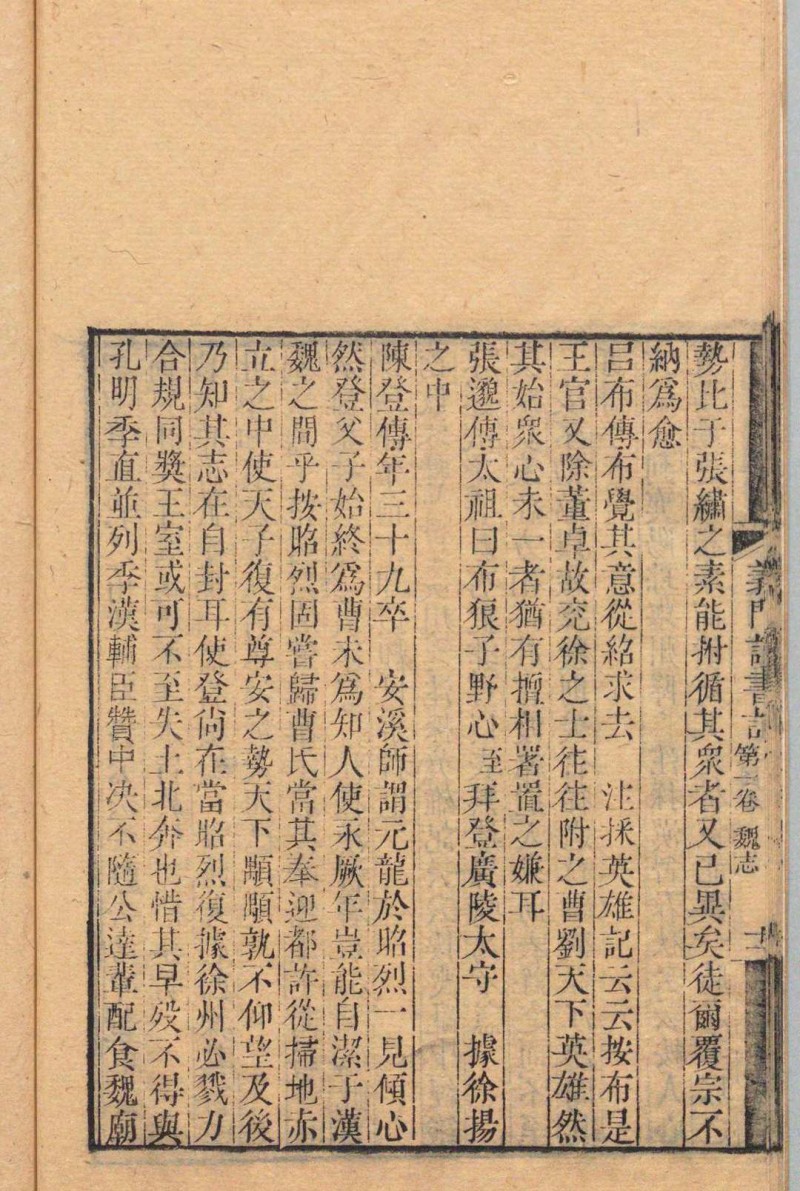 義門讀書記 第一卷 魏志
勢比于張繡之素能拊循其衆者又已異矣徒爾覆宗不
納爲愈
呂布傳布覺其意從紹求去 注採英雄記云云按布是
王官又除董卓故兖徐之士往往附之曹劉天下英雄然
其始衆心未一者猶有擅相署置之嫌耳
張邈傳太祖曰布狼子野心至拜登廣陵太守 據徐揚
之中
陳登傳年三十九卒 安溪師謂元龍於昭烈一見傾心
然登父子始終爲曹未爲知人使永厥年豈能自潔于漢
魏之間乎按昭烈固嘗歸曹氏當其奉迎都許從掃地赤
立之中使天子復有尊安之勢天下顒顒孰不仰望及後
乃知其志在自封耳使登尚在當昭烈復據徐州必戮力
合規同獎王室或可不至失土北奔也惜其早歿不得與
孔明季直並列季漢輔臣贊中决不隨公達輩配食魏廟